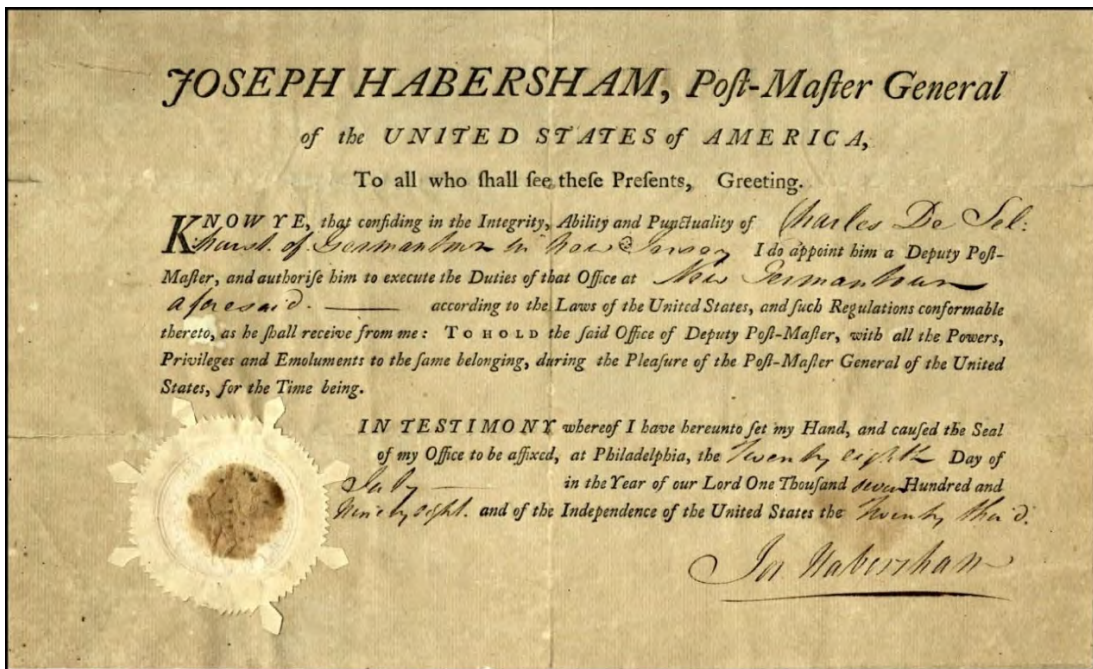 JOSEPH HABERSHAM, Poſt-Maſter General
of the UNITED STATES of AMERICA,
To all who ſhall ſee theſe Preſents, Greeting.
KNOW YE, that confiding in the Integrity, Ability and Punctuality of Charles De Sel:
hurst of Germantown in New Jersey I do appoint him a Deputy Poſt-
Maſter, and authoriſe him to execute the Duties of that Office at New Germantown
aforesaid. — according to the Laws of the United States, and ſuch Regulations conformable
thereto, as he ſhall receive from me: TO HOLD the ſaid Office of Deputy Poſt-Maſter, with all the Powers,
Privileges and Emoluments to the ſame belonging, during the Pleaſure of the Poſt-Maſter General of the United
States, for the Time being.
IN TESTIMONY whereof I have hereunto ſet my Hand, and cauſed the Seal
of my Office to be affixed, at Philadelphia, the Twenty eighth Day of
July — in the Year of our Lord One Thouſand seven Hundred and
Ninety eight. and of the Independence of the United States the Twenty third.
Jos Habersham